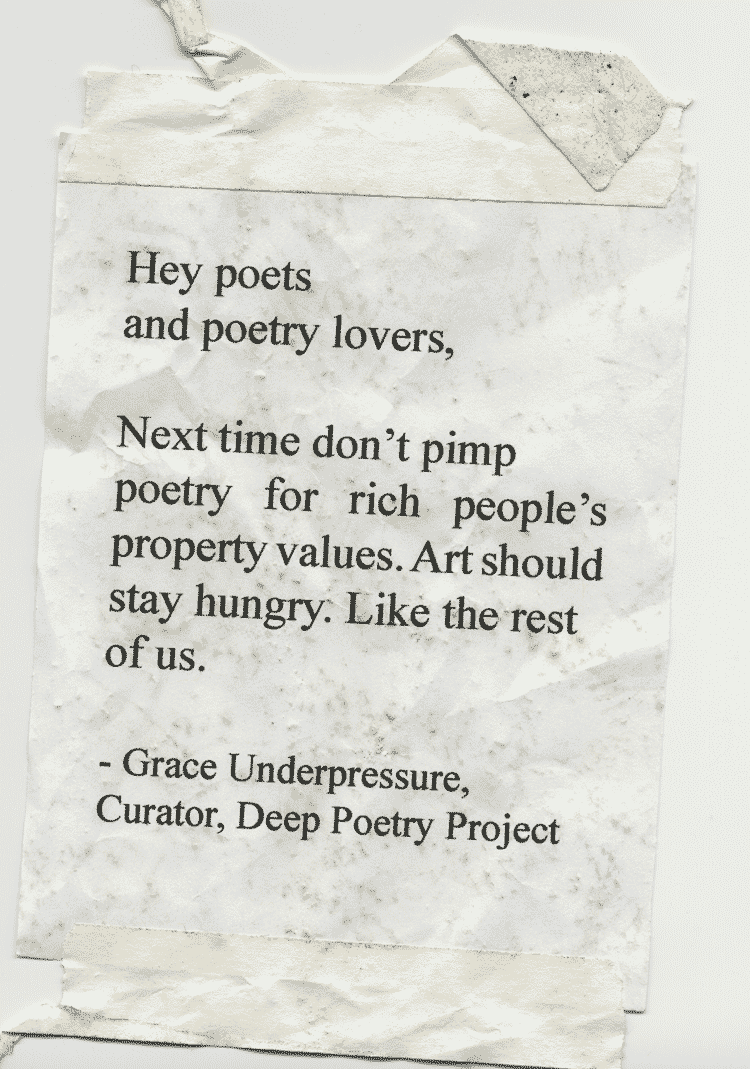 Hey poets
and poetry lovers,
Next time don’t pimp
poetry for rich people’s
property values. Art should
stay hungry. Like the rest
of us.
- Grace Underpressure,
Curator, Deep Poetry Project